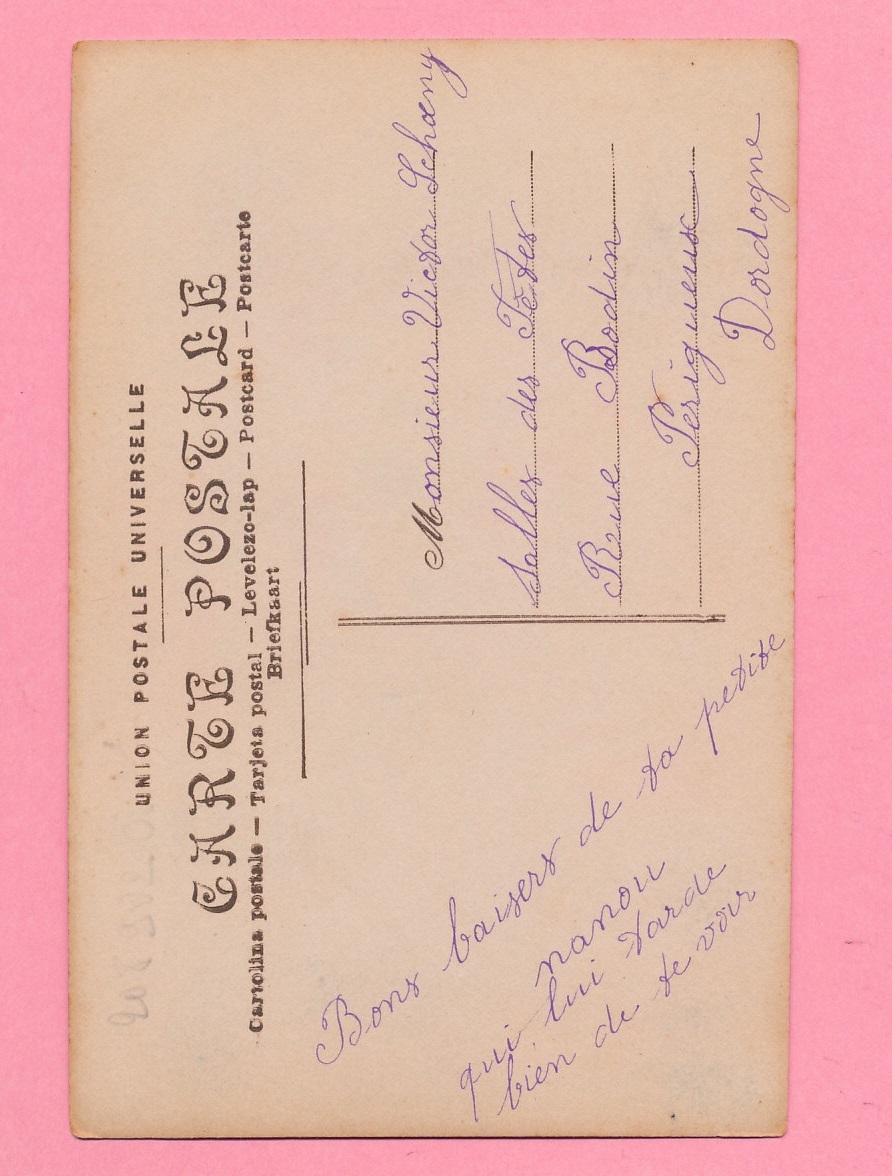 UNION POSTALE UNIVERSELLE
CARTE POSTALE
Cartolina postale — Tarjeta postal — Levelezo-lap — Postcard — Postcarte
Briefkaart
Bons baisers de ta petite
nanou
qui lui tarde
bien de te voir
Monsieur Victor Schœny
Salles des Fêtes
Rue Bodin
Perigueux
Dordogne